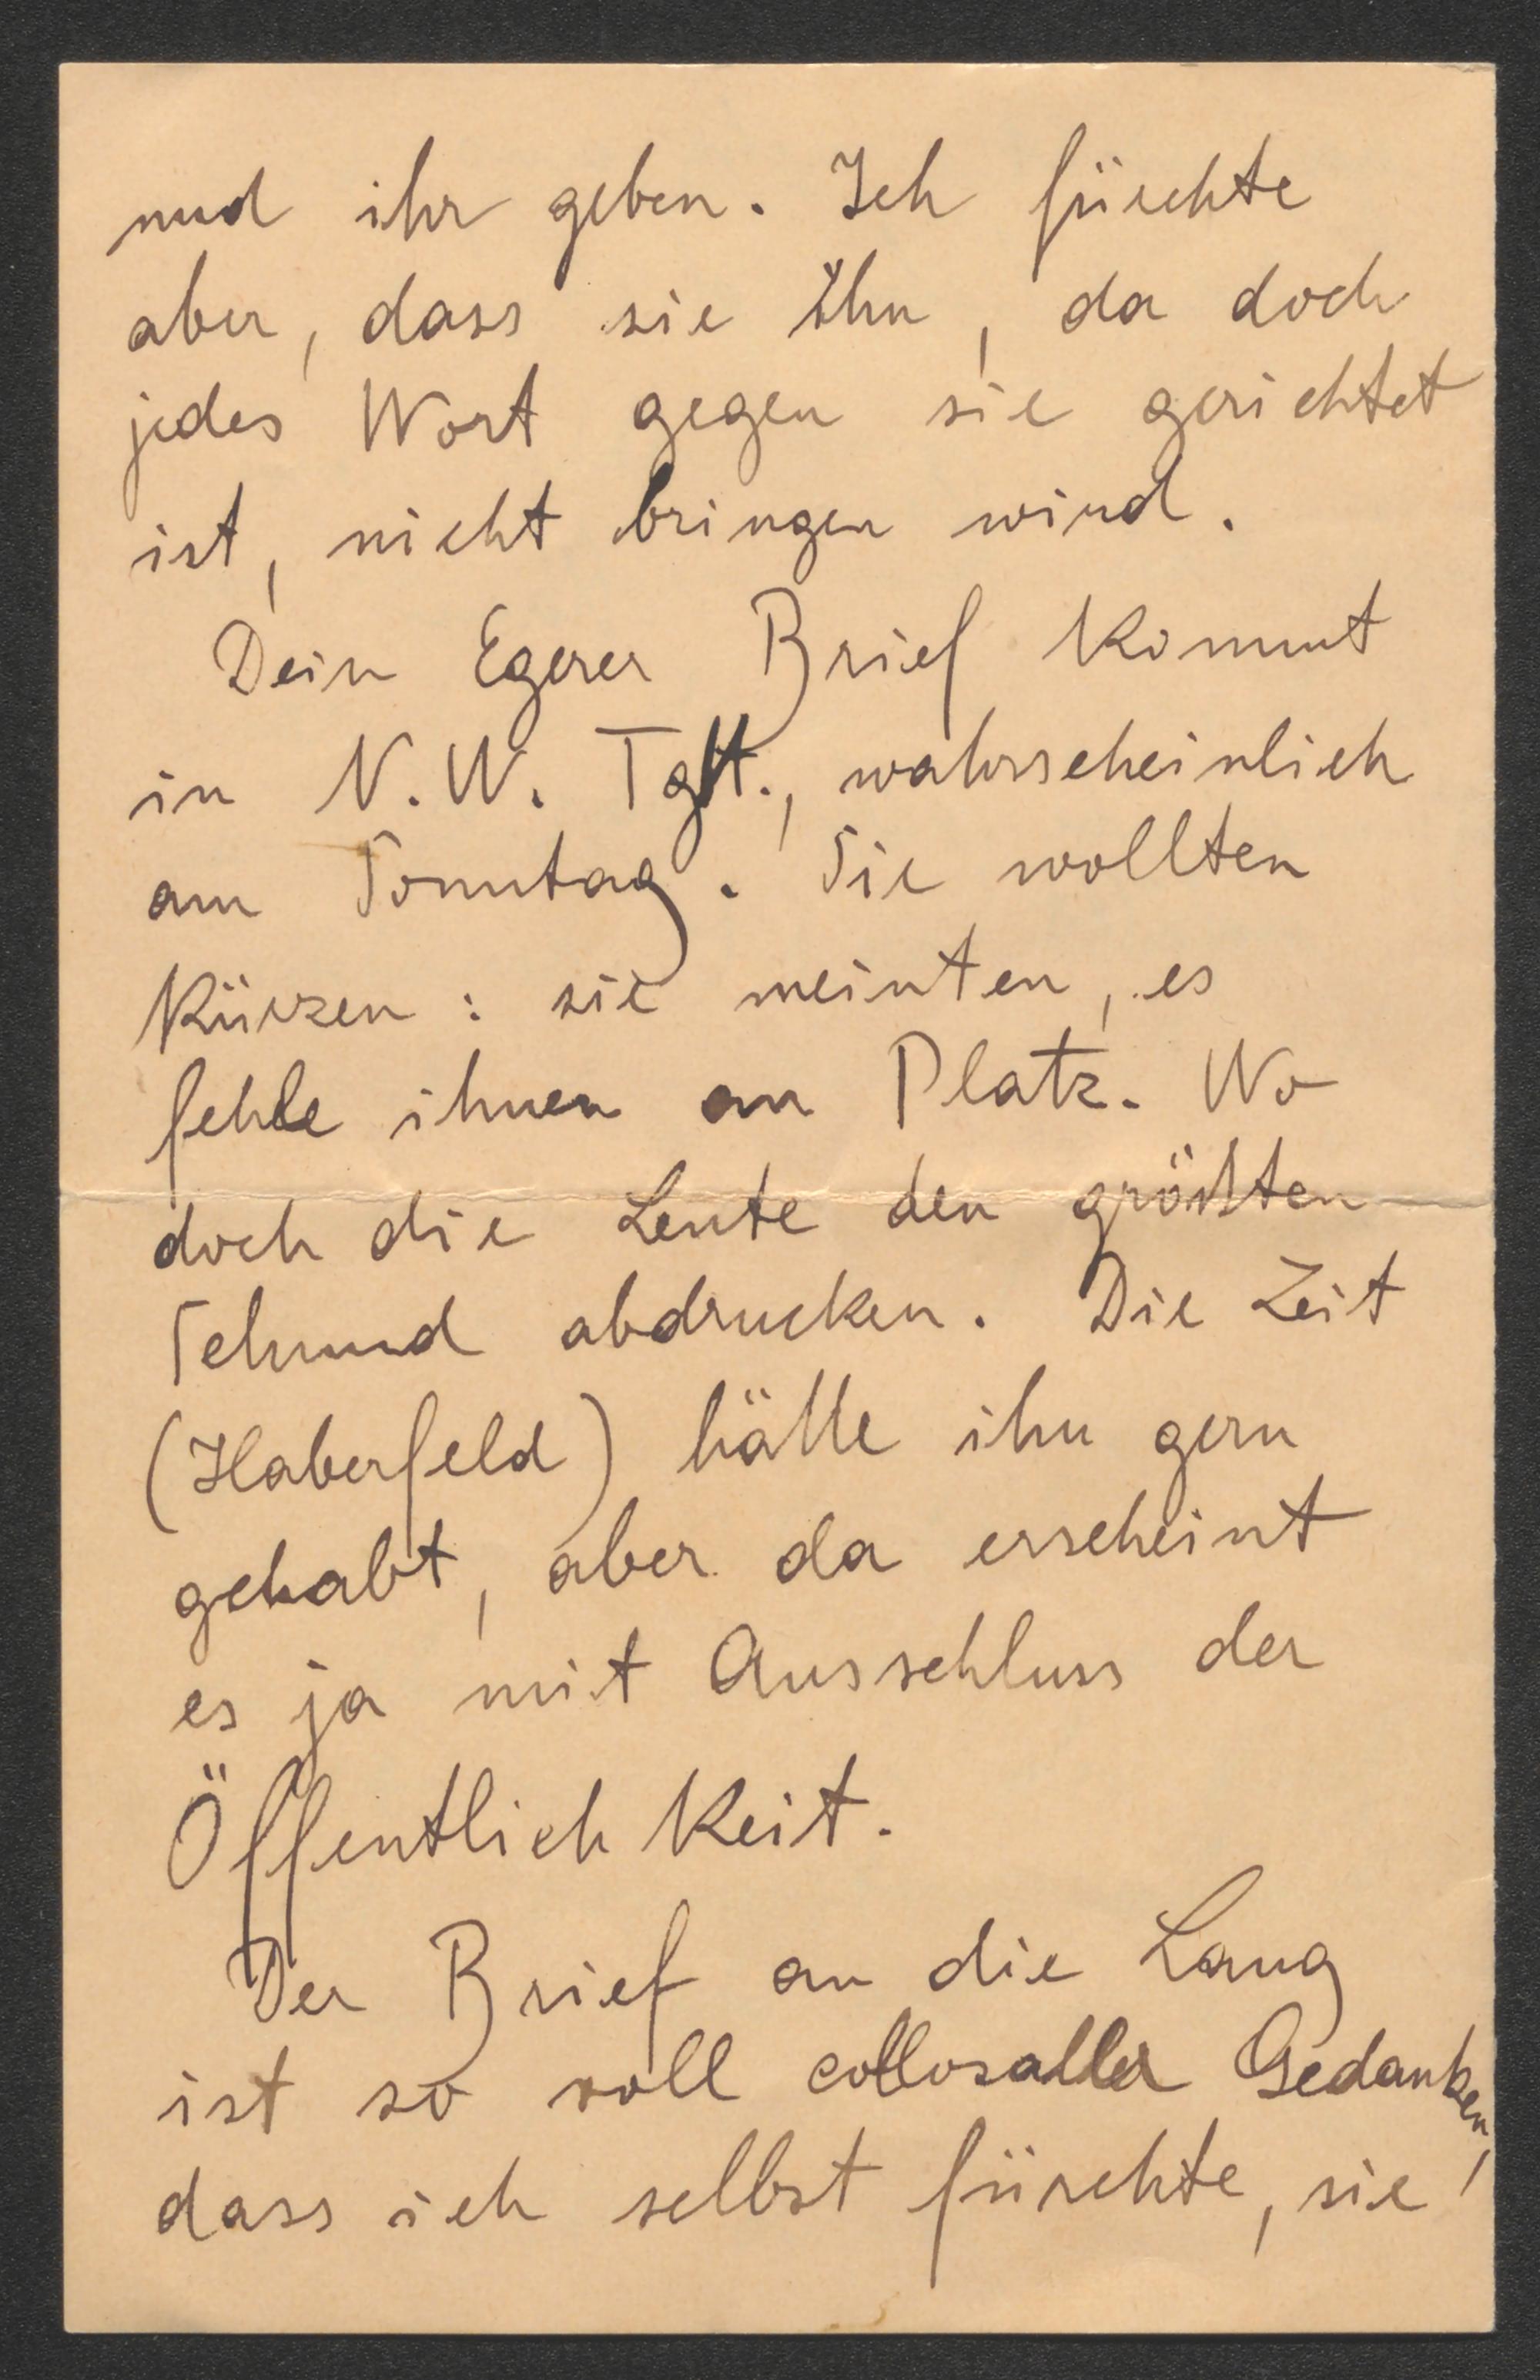 und ihr geben. Ich fürchte
aber, dass sie ihn, da doch
jedes Wort gegen sie gerichtet
ist, nicht bringen wird.
Dein Egerer Brief kommt
in N. W. Tgbl., wahrscheinlich
am Sonntag. Sie wollten
kürzen: sie meinten, es
fehle ihnen an Platz. Wo
doch die Leute den größten
Schund abdrucken. Die Zeit
(Haberfeld) hätte ihn gern
gehabt, aber da erscheint
es ja mit Ausschluss der
Öffentlichkeit.
Der Brief an die Lang
ist so voll collosaller Gedanken,
dass ich selbst fürchte, sie